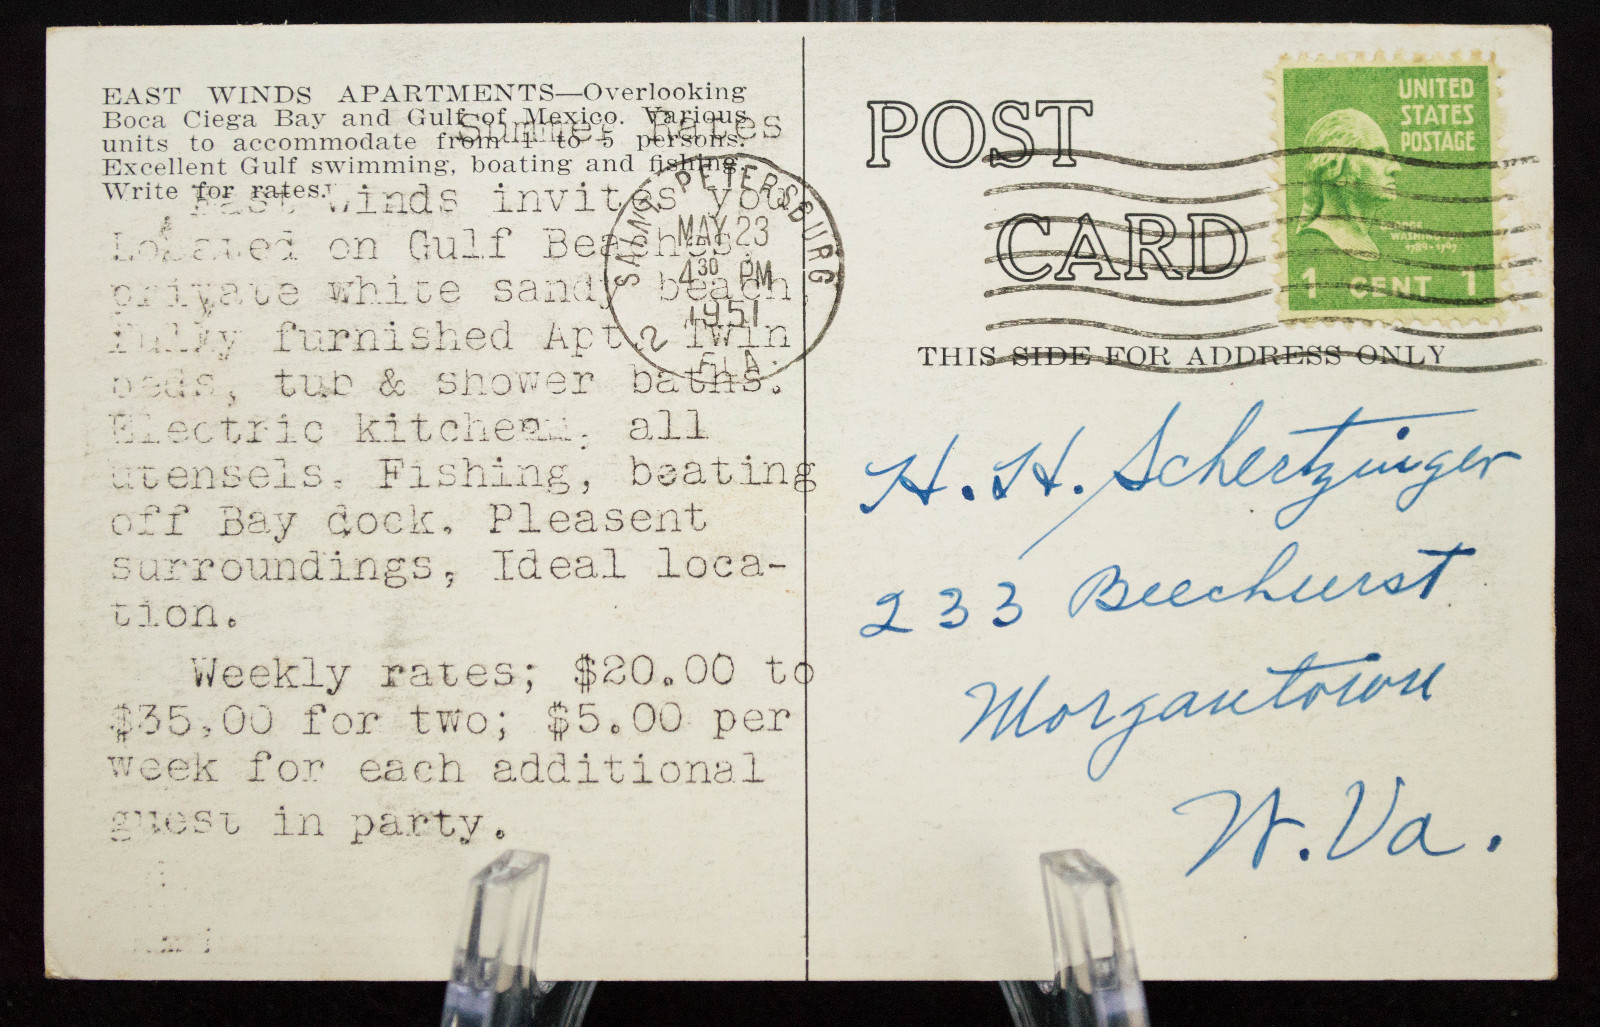 EAST WINDS APARTMENTS—Overlooking
Boca Ciega Bay and Gulf of Mexico. Various
units to accommodate from 1 to 5 persons.
Excellent Gulf swimming, boating and fishing.
Write for rates.
Summer Rates
East Winds invites you
Located on Gulf Beaches,
private white sandy beach,
fully furnished Apt. Twin
beds, tub & shower baths.
Electric kitchen, all
utensels. Fishing, boating
off Bay dock. Pleasent
surroundings, Ideal loca-
tion.
Weekly rates; $20.00 to
$35.00 for two; $5.00 per
week for each additional
guest in party.
SAINT PETERSBURG
MAY 23
4 30 PM
1951
2
FLA.
POST
CARD
THIS SIDE FOR ADDRESS ONLY
UNITED
STATES
POSTAGE
GEORGE
WASHINGTON
1789-1797
1 CENT 1
H. H. Schertzinger
233 Beechurst
Morgantown
W. Va.